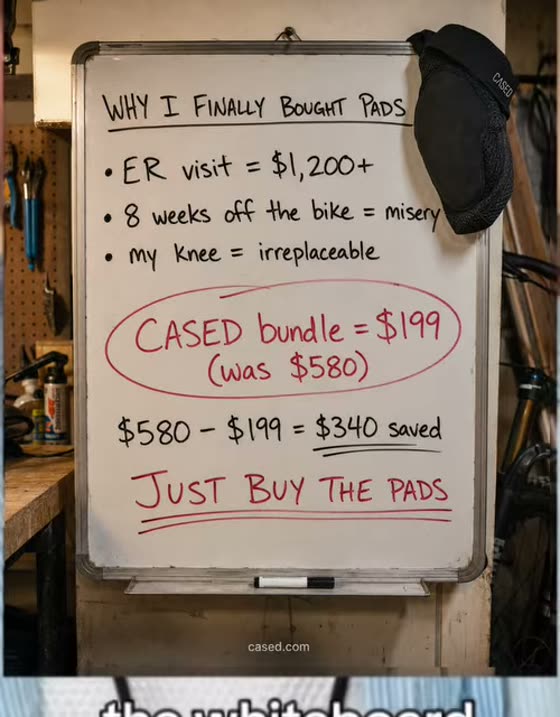 CASED
WHY I FINALLY BOUGHT PADS
• ER visit = $1,200+
• 8 weeks off the bike = misery
• my knee = irreplaceable
CASED bundle = $199
(was $580)
$580 - $199 = $340 saved
JUST BUY THE PADS
cased.com
the whiteboard